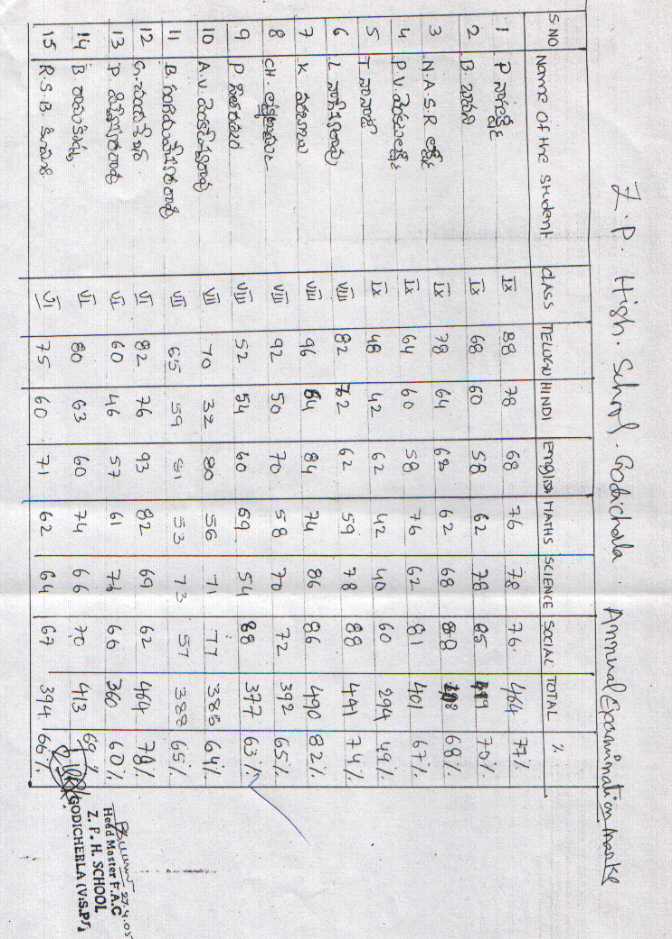 Z.P. High. School. Godicherla. Annual Examination Marks
S NO Name of the student CLASS TELUGU HINDI English MATHS SCIENCE SOCIAL TOTAL %
1 P నాగలక్ష్మి IX 88 78 68 76 78 76 464 77%
2 B. IX 68 60 58 62 78 85 70%
3 N.A.S.R లక్ష్మి IX 78 64 68 62 68 68%
4 P.V. వెంకటలక్ష్మి IX 64 60 58 76 62 81 401 67%
5 T నానాజీ IX 48 42 62 42 40 60 294 49%
6 L నాగేశ్వరరావు VIII 82 72 62 59 78 88 441 74%
7 K VIII 96 64 84 74 86 86 490 82%
8 CH. VIII 92 50 70 58 70 72 392 65%
9 P VIII 52 54 60 69 54 88 377 63%
10 A.V. వెంకటేశ్వరరావు VII 70 32 80 56 71 77 386 64%
11 B. VII 65 59 81 53 73 57 388 65%
12 G. VI 82 76 93 82 69 62 464 78%
13 P VI 60 46 57 61 66 360 60%
14 B రామకృష్ణ VI 80 63 60 74 66 70 413 69%
15 R.S.B. కుమారి VI 75 60 71 62 64 67 394 66%
Head Master F.A.C
Z. P. H. SCHOOL
GODICHERLA (V.S.P)